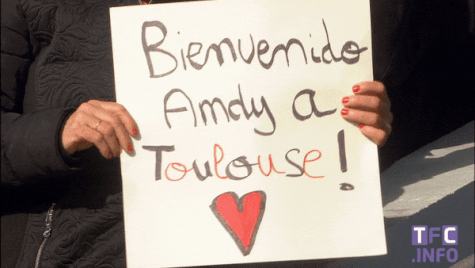 Bienvenido
Amdy a
Toulouse!
TFC
.INFO